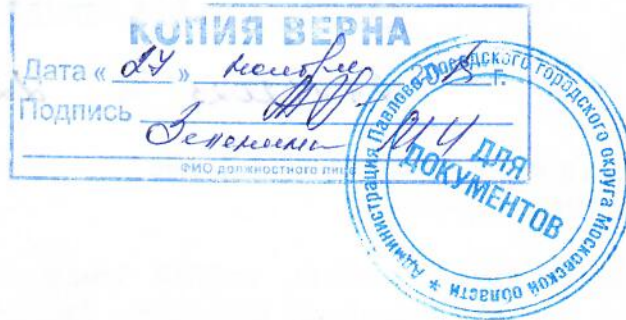 КОПИЯ ВЕРНА
Дата « 27 » ноября г.
Подпись
ФИО должностного лица
Администрация Павлово-Посадского городского округа Московской области *
ДЛЯ
ДОКУМЕНТОВ